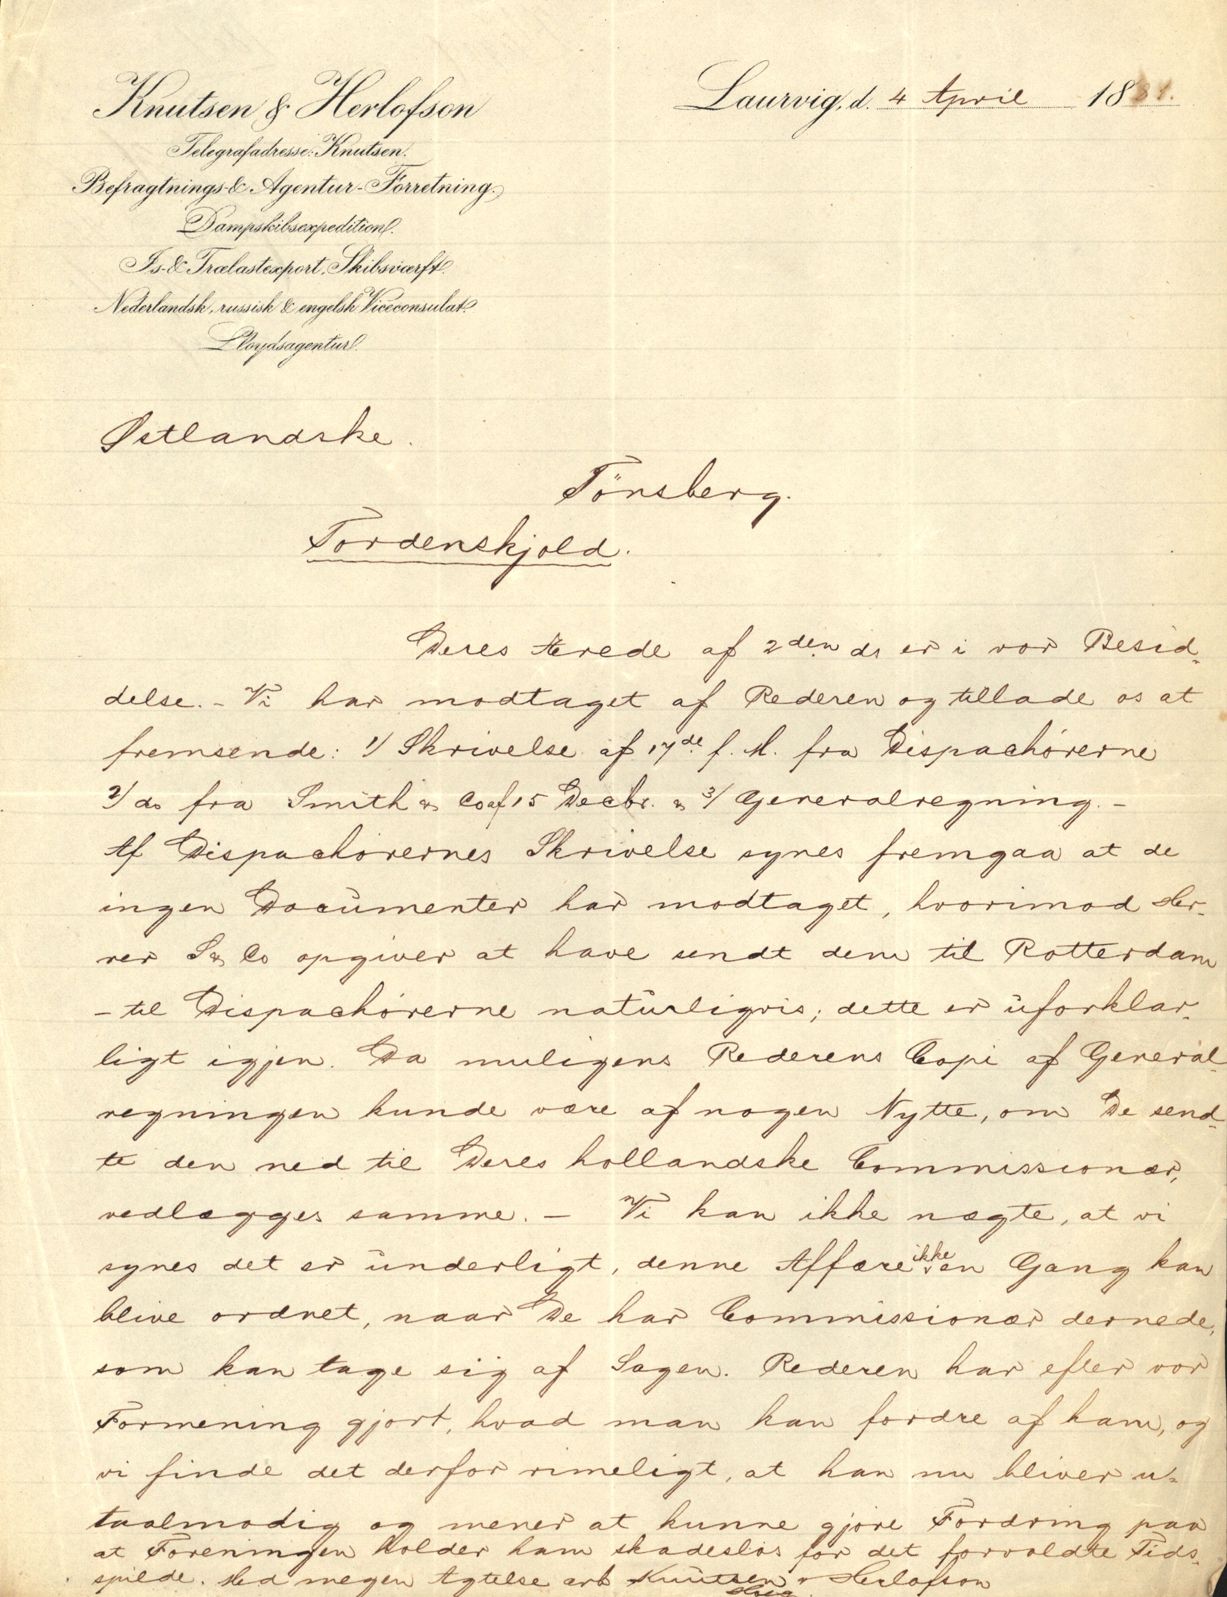 Knutsen & Herlofson
Laurvig, d. 4 April 1881.
Telegrafadresse: Knutsen.
Befragtnings- & Agentur-Forretning.
Dampskibsexpedition.
Is- & Trælastexport, Skibsværft.
Nederlandsk, russisk & engelsk Viceconsulat.
Lloydsagentur.
Østlandske.
Tönsberg.
Tordenskjold.
Deres Ærede af 2den ds er i vor Besid-
delse. - Vi har modtaget af Rederen og tillade os at
fremsende: 1/ Skrivelse af 17de f. M. fra Dispachörerne
2/ do fra Smith & Co af 15 Decbr. & 3/ Generalregning. -
Af Dispachörernes Skrivelse synes fremgaa at de
ingen Documenter har modtaget, hvorimod Her-
rer S & Co opgiver at have sendt dem til Rotterdam
- til Dispachörerne naturligvis; dette er uforklar-
ligt igjen. Da muligens Rederens Copi af General-
regningen kunde være af nogen Nytte, om De send-
te den ned til Deres hollandske Commissionær,
vedlægges samme. - Vi kan ikke nægte, at vi
synes det er underligt, denne Affære ikke en Gang kan
blive ordnet, naar De har Commissionær dernede,
som kan tage sig af Sagen. Rederen har efter vor
Formening gjort, hvad man kan fordre af ham, og
vi finde det derfor rimeligt, at han nu bliver u-
taalmodig og mener at kunne gjöre Fordring paa
at Foreningen holder ham skadeslös for det forvoldte Tids-
spilde. Med megen Agtelse Knutsen & Herlofson